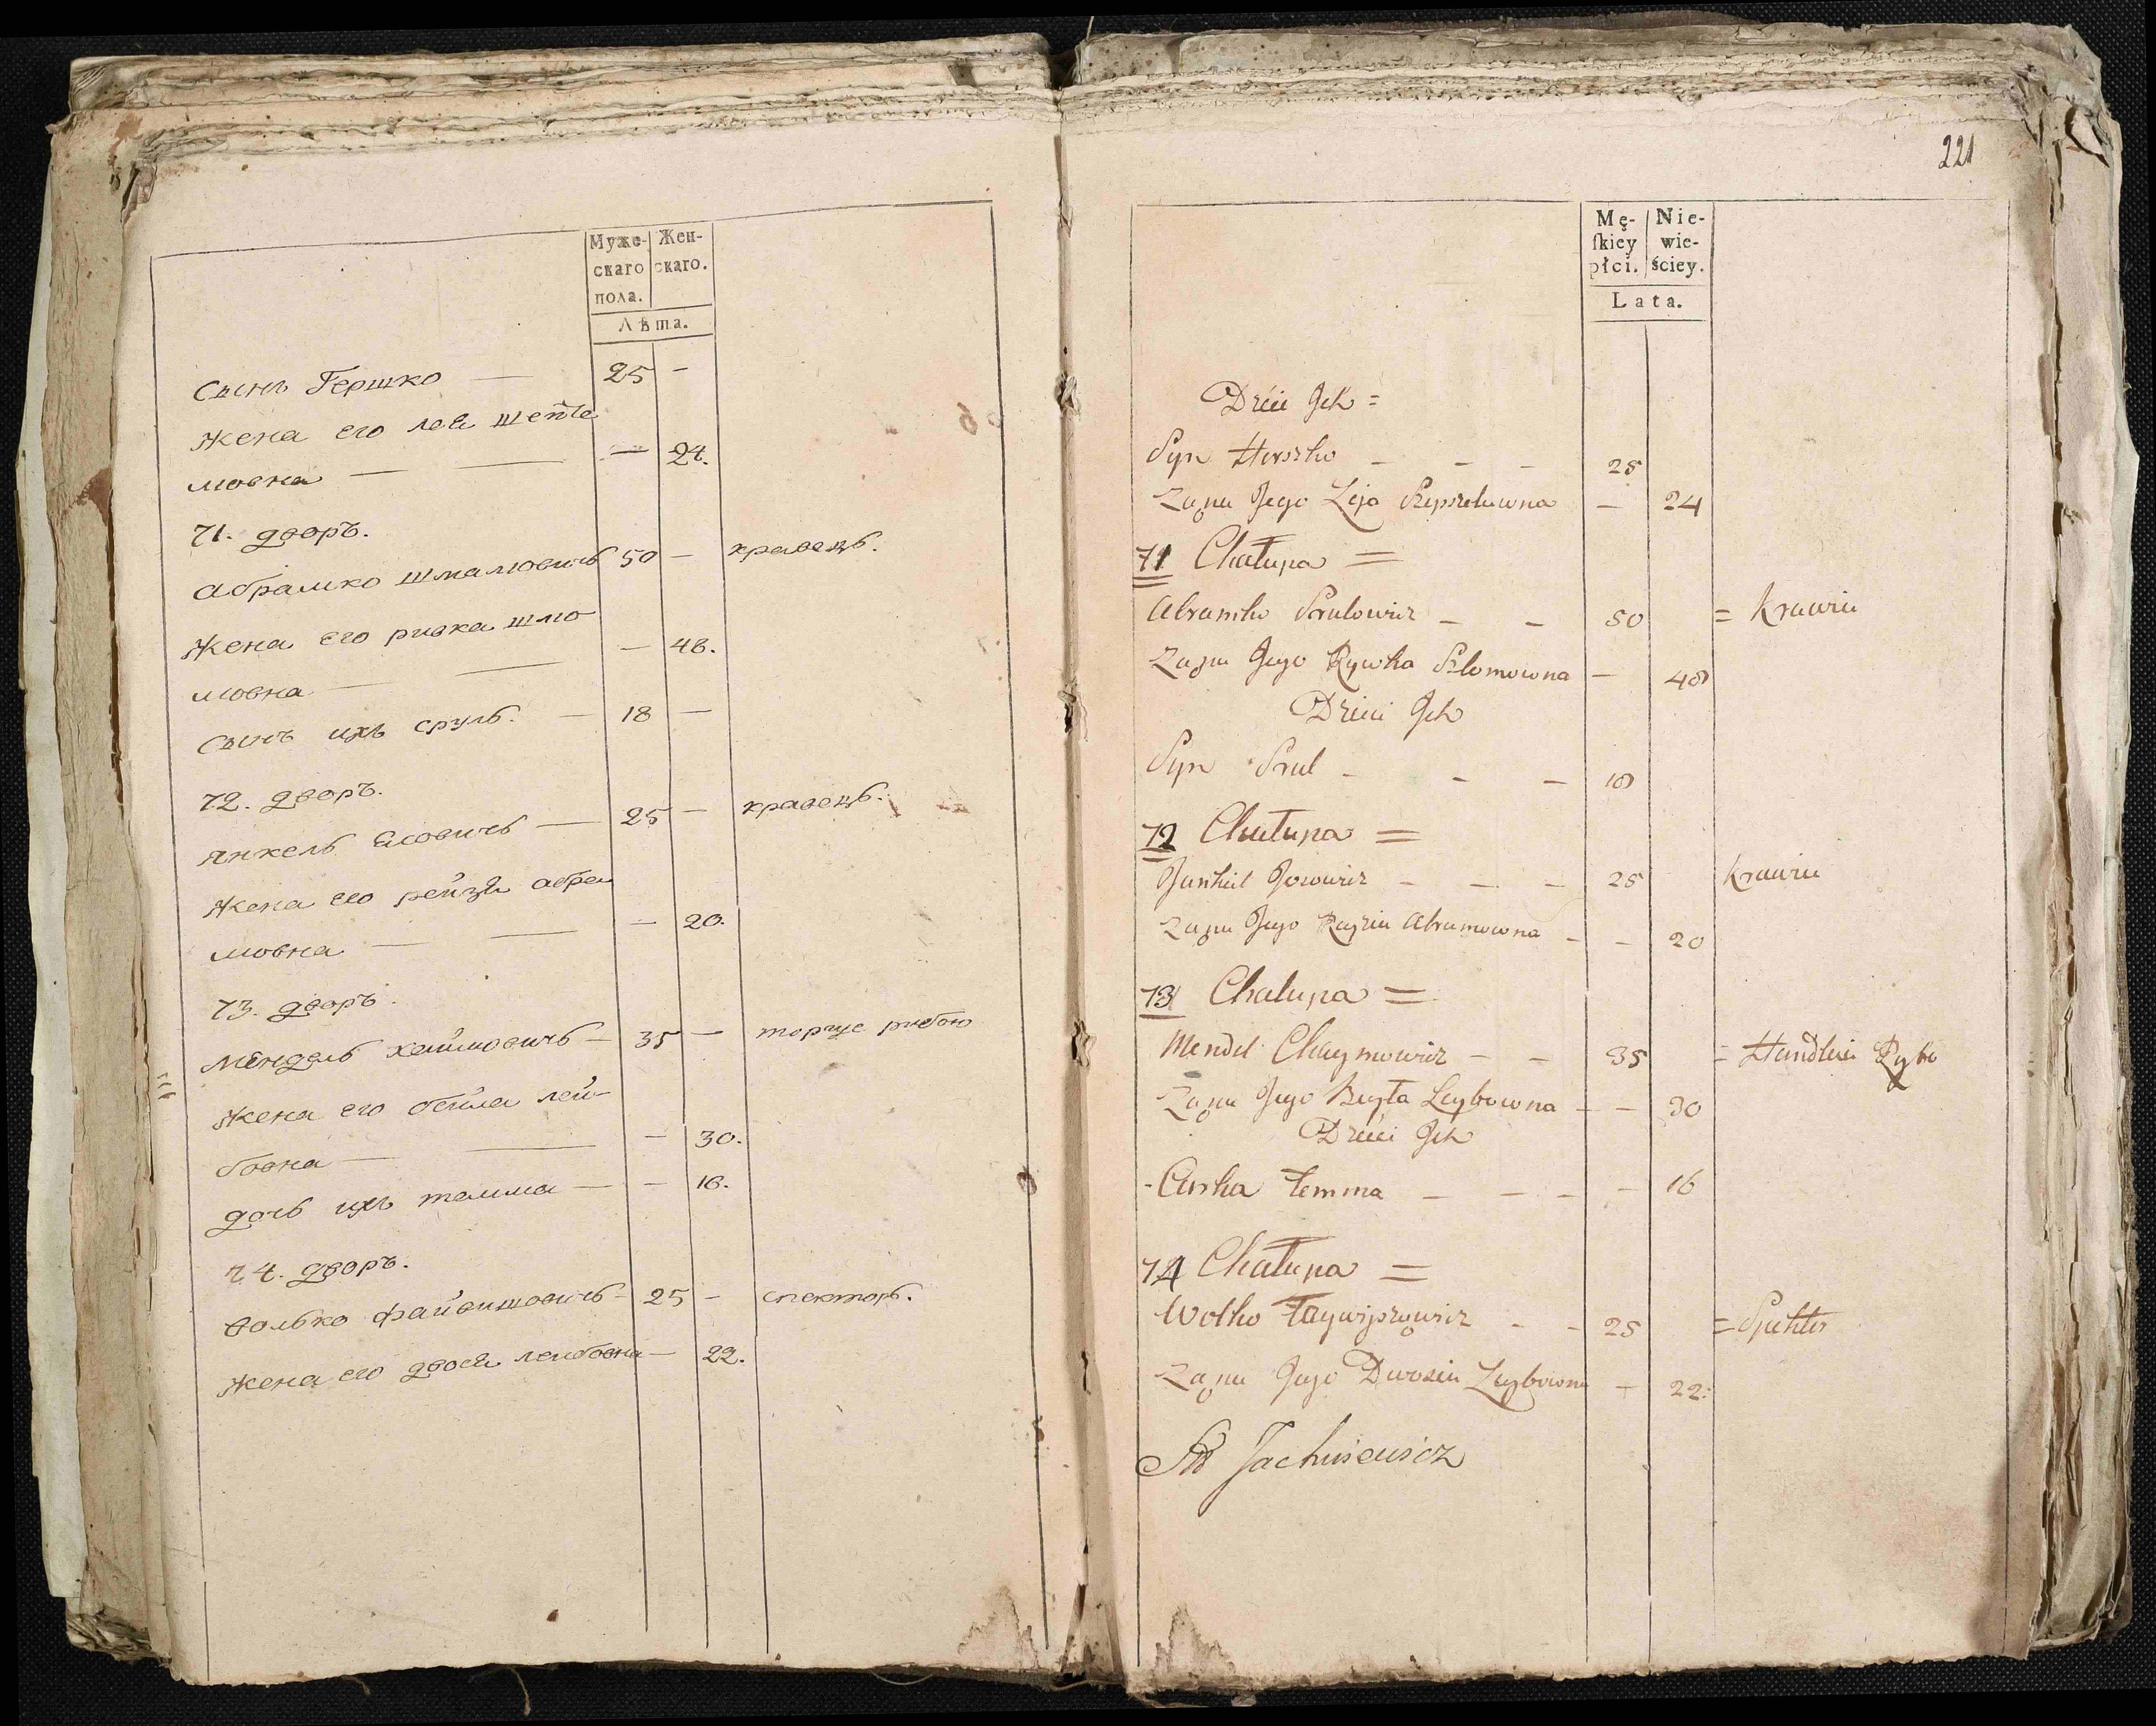 Муже- Жен-
скаго скаго.
пола.
Лѣта.
сынъ Гершко — 25 -
жена его лея шепше
мовна — — — 24.
71. дворъ.
абрамко шмалювичь 50 — кравець.
жена его ривка шлио
мовна — — — 48.
сынъ ихъ сруль. — 18 —
72. дворъ.
янкель Есовичь — 25 — кравець.
жена его рейзя абра
мовна — — — 20.
73. дворъ.
мендель хаимовичь — 35 — торгує рибою
жена его бейла лей-
бовна — — — 30.
дочь ихъ темма — — 16.
74. дворъ.
волько файвишовичь - 25 - спекторь.
жена его двося лейбовна — 22.
221
Mę- Nie-
ſkiey wie-
płci. ściey.
Lata.
Dzieci Ich =
Syn Herszko - - - 25
Żona Jego Leja Szepszelowna — 24
71 Chałupa =
Abramko Srulowicz - - 50 = Krawiec
Żona Jego Rywka Szlomowna — 48
Dzieci Ich
Syn Srul - - - 18
72 Chałupa =
Jankiel Josowicz - - - 25 Krawiec
Żona Jego Rayzia Abramowna - - 20
73 Chalupa =
Mendel Chaymowicz - - 35 = Handluie Rybo
Żona Jego Beyła Leybowna - - 30
Dzieci Ich
- Curka Temma - - - - 16
74 Chałupa =
Wolko Faywiszowicz - - 25 = Spektor
Żona Jego Dwosia Leybowna - 22.
Jachniewicz